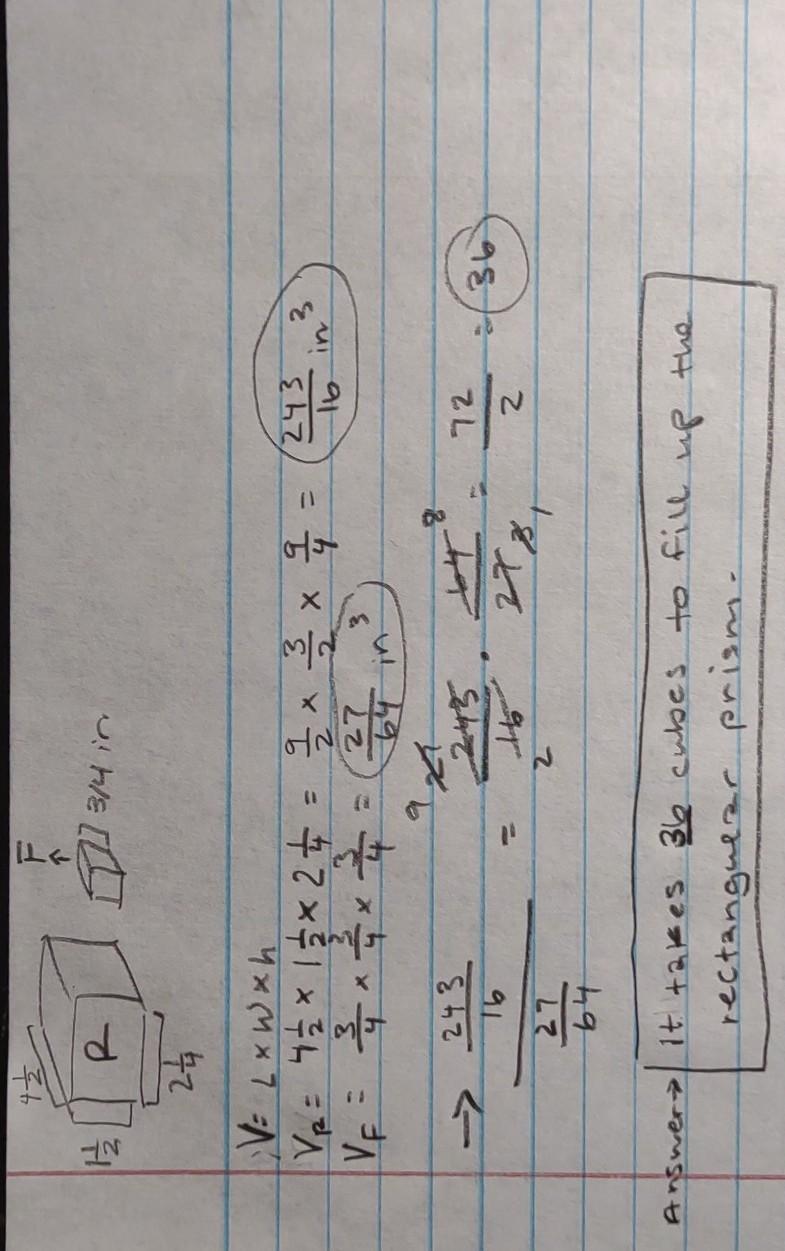 F
4 1/2
R
3/4 in
1 1/2
2 1/4
V = L x W x h
V_R = 4 1/2 x 1 1/2 x 2 1/4 = 9/2 x 3/2 x 9/4 = 243/16 in³
V_F = 3/4 x 3/4 x 3/4 = 27/64 in³
→ 243/16 / 27/64 = 243/16 · 64/27 = 72/2 = 36
9 27 8
2 3 1
Answer → It takes 36 cubes to fill up the
rectangular prism.